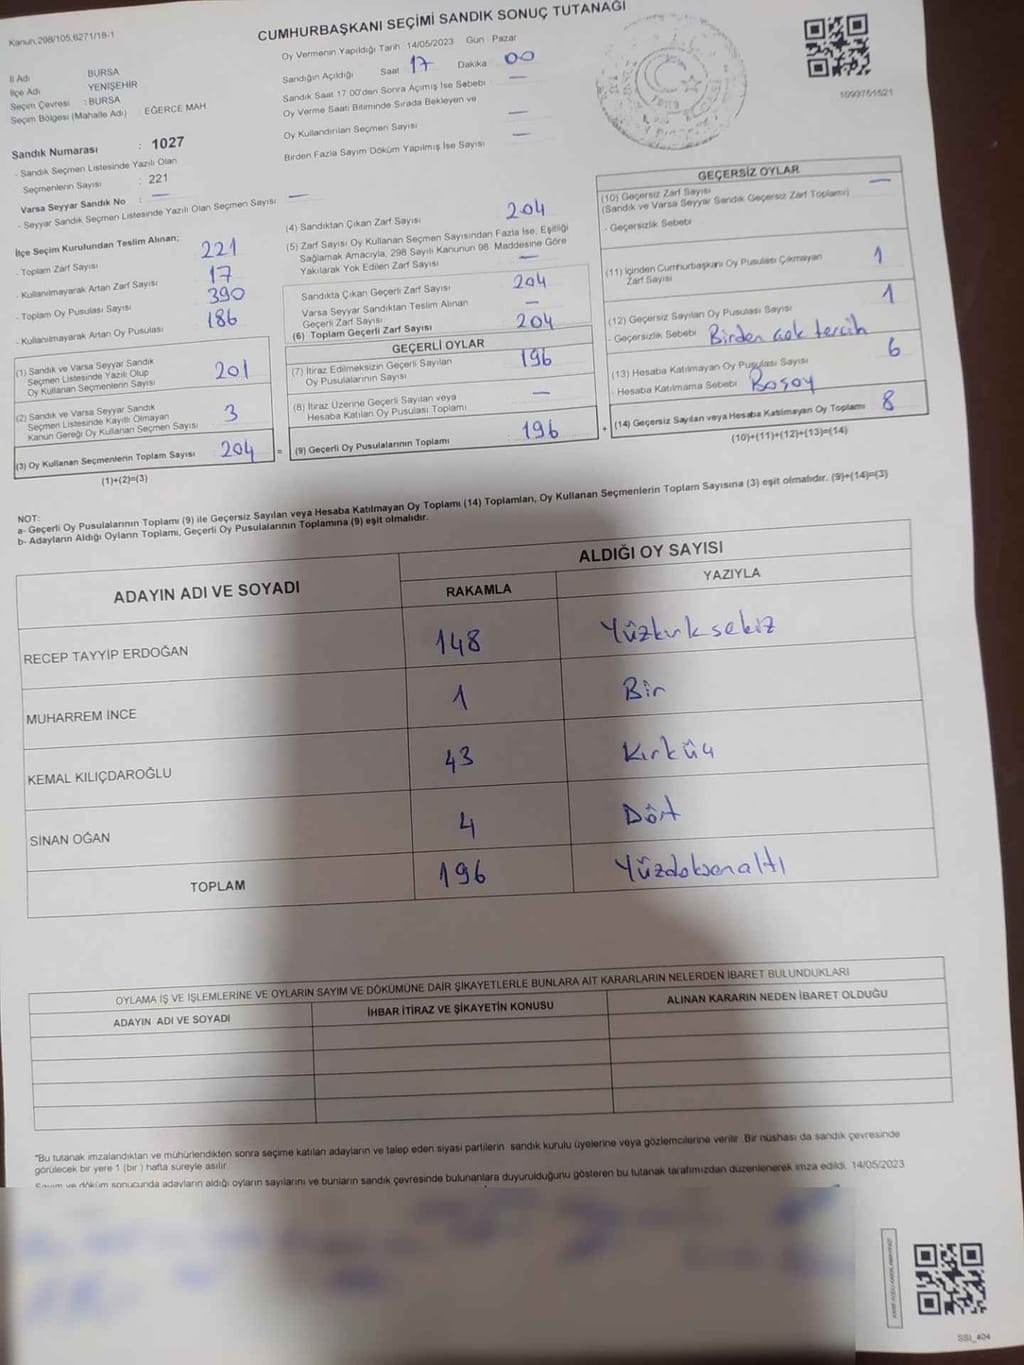 Kanun,298/105,6271/18-1
CUMHURBAŞKANI SEÇİMİ SANDIK SONUÇ TUTANAĞI
Oy Vermenin Yapıldığı Tarih 14/05/2023 Gün : Pazar
İl Adı BURSA
İlçe Adı YENİŞEHİR
Seçim Çevresi : BURSA
Seçim Bölgesi (Mahalle Adı) EĞERCE MAH
Sandık Numarası : 1027
- Sandık Seçmen Listesinde Yazılı Olan
Seçmenlerin Sayısı : 221
Varsa Seyyar Sandık No : —
- Seyyar Sandık Seçmen Listesinde Yazılı Olan Seçmen Sayısı: —
Sandığın Açıldığı Saat 17 Dakika 00
Sandık Saat 17.00'den Sonra Açımış İse Sebebi : —
Oy Verme Saati Bitiminde Sırada Bekleyen ve
Oy Kullandırılan Seçmen Sayısı —
Birden Fazla Sayım Döküm Yapılmış İse Sayısı —
1093751521
İlçe Seçim Kurulundan Teslim Alınan;
- Toplam Zarf Sayısı 221
- Kullanılmayarak Artan Zarf Sayısı 17
- Toplam Oy Pusulası Sayısı 390
- Kullanılmayarak Artan Oy Pusulası 186
(1) Sandık ve Varsa Seyyar Sandık
Seçmen Listesinde Yazılı Olup
Oy Kullanan Seçmenlerin Sayısı 201
(2) Sandık ve Varsa Seyyar Sandık
Seçmen Listesinde Kayıtlı Olmayan
Kanun Gereği Oy Kullanan Seçmen Sayısı 3
(3) Oy Kullanan Seçmenlerin Toplam Sayısı 204 =
(1)+(2)=(3)
(4) Sandıktan Çıkan Zarf Sayısı 204
(5) Zarf Sayısı Oy Kullanan Seçmen Sayısından Fazla İse, Eşitliği
Sağlamak Amacıyla, 298 Sayılı Kanunun 98. Maddesine Göre
Yakılarak Yok Edilen Zarf Sayısı —
Sandıkta Çıkan Geçerli Zarf Sayısı 204
Varsa Seyyar Sandıktan Teslim Alınan
Geçerli Zarf Sayısı —
(6) Toplam Geçerli Zarf Sayısı 204
GEÇERLİ OYLAR
(7) İtiraz Edilmeksizin Geçerli Sayılan
Oy Pusulalarının Sayısı 196
(8) İtiraz Üzerine Geçerli Sayılan veya
Hesaba Katılan Oy Pusulası Toplamı —
(9) Geçerli Oy Pusulalarının Toplamı 196 +
GEÇERSİZ OYLAR
(10) Geçersiz Zarf Sayısı —
(Sandık ve Varsa Seyyar Sandık Geçersiz Zarf Toplamı)
- Geçersizlik Sebebi
(11) İçinden Cumhurbaşkanı Oy Pusulası Çıkmayan
Zarf Sayısı 1
(12) Geçersiz Sayılan Oy Pusulası Sayısı 1
- Geçersizlik Sebebi Birden çok tercih
(13) Hesaba Katılmayan Oy Pusulası Sayısı 6
- Hesaba Katılmama Sebebi Boşoy
(14) Geçersiz Sayılan veya Hesaba Katılmayan Oy Toplamı 8
(10)+(11)+(12)+(13)=(14)
NOT:
a- Geçerli Oy Pusulalarının Toplamı (9) ile Geçersiz Sayılan veya Hesaba Katılmayan Oy Toplamı (14) Toplamları, Oy Kullanan Seçmenlerin Toplam Sayısına (3) eşit olmalıdır. (9)+(14)=(3)
b- Adayların Aldığı Oyların Toplamı, Geçerli Oy Pusulalarının Toplamına (9) eşit olmalıdır.
ADAYIN ADI VE SOYADI
ALDIĞI OY SAYISI
RAKAMLA YAZIYLA
RECEP TAYYİP ERDOĞAN 148 Yüzkırksekiz
MUHARREM İNCE 1 Bir
KEMAL KILIÇDAROĞLU 43 Kırküç
SİNAN OĞAN 4 Dört
TOPLAM 196 Yüzdoksanaltı
OYLAMA İŞ VE İŞLEMLERİNE VE OYLARIN SAYIM VE DÖKÜMÜNE DAİR ŞİKAYETLERLE BUNLARA AİT KARARLARIN NELERDEN İBARET BULUNDUKLARI
ADAYIN ADI VE SOYADI İHBAR İTİRAZ VE ŞİKAYETİN KONUSU ALINAN KARARIN NEDEN İBARET OLDUĞU
"Bu tutanak imzalandıktan ve mühürlendikten sonra seçime katılan adayların ve talep eden siyasi partilerin sandık kurulu üyelerine veya gözlemcilerine verilir. Bir nüshası da sandık çevresinde
görülecek bir yere 1 (bir ) hafta süreyle asılır.
Sayım ve döküm sonucunda adayların aldığı oyların sayılarını ve bunların sandık çevresinde bulunanlara duyurulduğunu gösteren bu tutanak tarafımızdan düzenlenerek imza edildi. 14/05/2023
SSİ_404